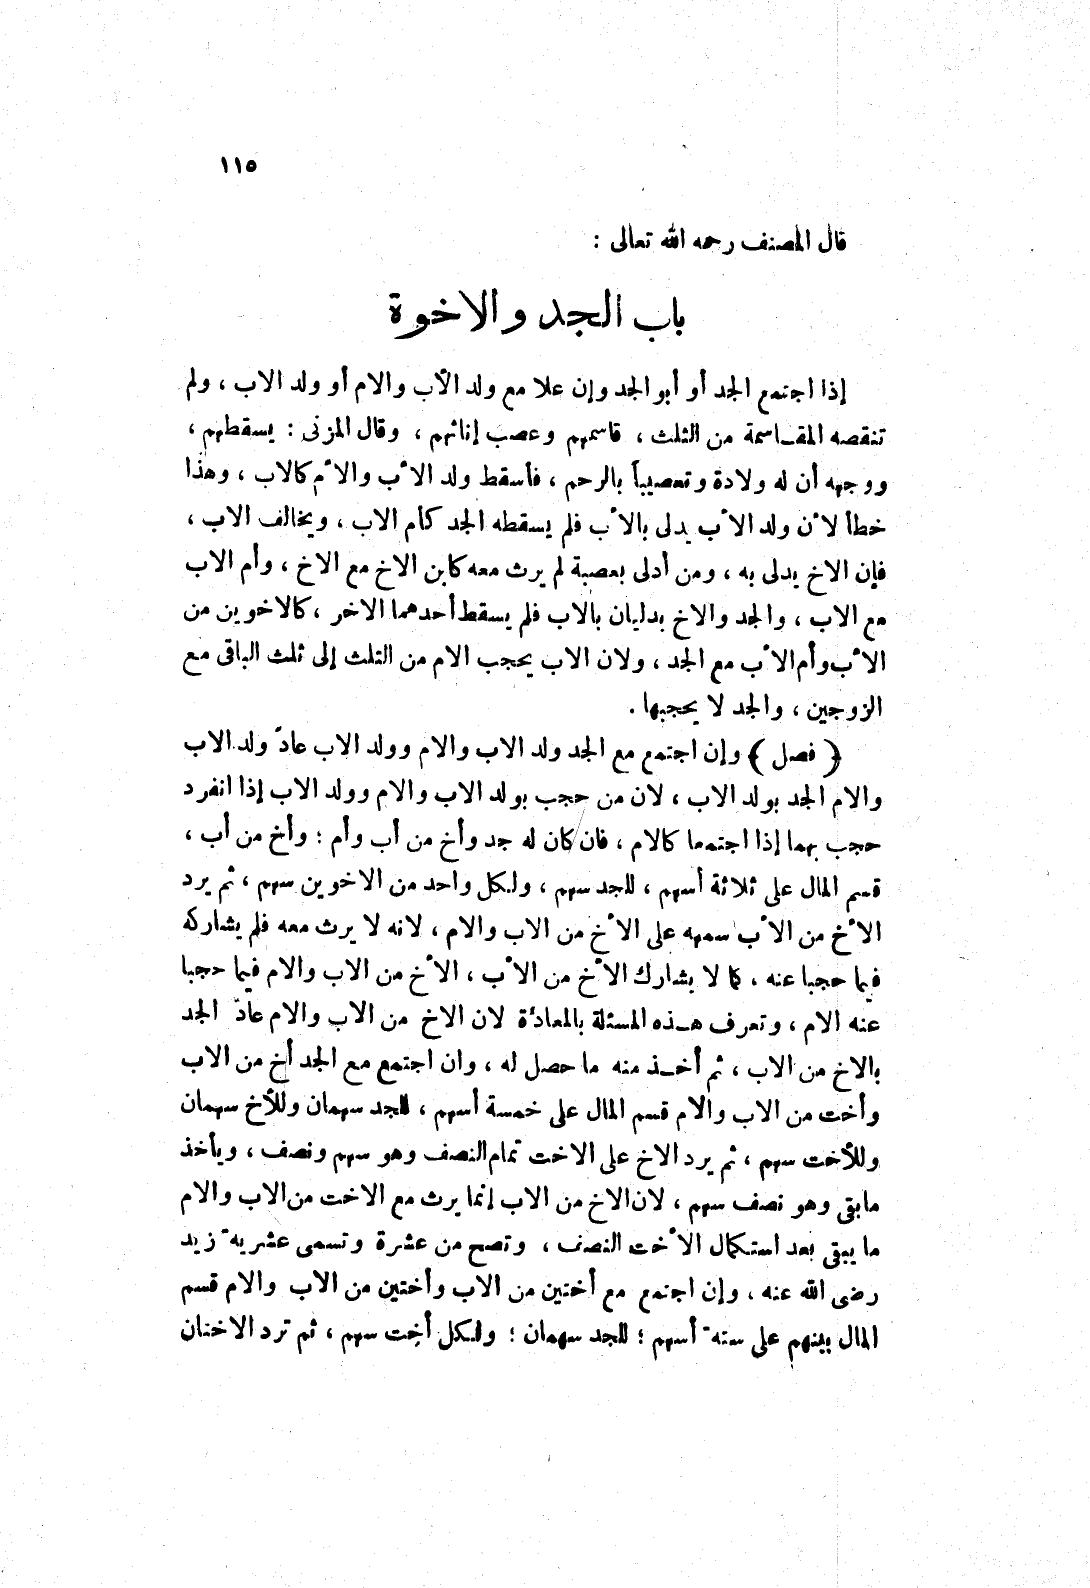 ١١٥
قال المصنف رحمه الله تعالى :
باب الجد والاخوة
إذا اجتمع الجد أو أبو الجد وإن علا مع ولد الأب والام أو ولد الاب ، ولم
تنقصه المقـاسمة من الثلث ، قاسمهم وعصب إناثهم ، وقال المزنى : يسقطهم ،
ووجهه أن له ولادة وتعصيباً بالرحم ، فأسقط ولد الأب والأم كالاب ، وهذا
خطأ لأن ولد الأب يدلى بالأب فلم يسقطه الجد كأم الاب ، ويخالف الاب ،
فإن الاخ يدلى به ، ومن أدلى بعصبة لم يرث معه كابن الاخ مع الاخ ، وأم الاب
مع الاب ، والجد والاخ يدليان بالاب فلم يسقط أحدهما الاخر ، كالاخوين من
الأب وأم الأب مع الجد ، ولان الاب يحجب الام من الثلث إلى ثلث الباقى مع
الزوجين ، والجد لا يحجبها .
( فصل ) وإن اجتمع مع الجد ولد الاب والام وولد الاب عادّ ولد الاب
والام الجد بولد الاب ، لان من حجب بولد الاب والام وولد الاب إذا انفرد
حجب بهما إذا اجتمعا كالام ، فان كان له جد وأخ من أب وأم ؛ وأخ من أب ،
قسم المال على ثلاثة أسهم ، للجد سهم ، ولكل واحد من الاخوين سهم ، ثم يرد
الأخ من الأب سهمه على الأخ من الاب والام ، لانه لا يرث معه فلم يشاركه
فيما حجبا عنه ، كما لا يشارك الأخ من الأب ، الأخ من الاب والام فيما حجبا
عنه الام ، وتعرف هـذه المسئلة بالمعادّة لان الاخ من الاب والام عادّ الجد
بالاخ من الاب ، ثم أخـذ منه ما حصل له ، وان اجتمع مع الجد أخ من الاب
وأخت من الاب والام قسم المال على خمسة أسهم ، للجد سهمان وللأخ سهمان
وللأخت سهم ، ثم يرد الاخ على الاخت تمام النصف وهو سهم ونصف ، ويأخذ
مابقى وهو نصف سهم ، لان الاخ من الاب إنما يرث مع الاخت من الاب والام
ما يبقى بعد استكمال الأخت النصف ، وتصح من عشرة وتسمى عشرية زيد
رضى الله عنه ، وإن اجتمع مع أختين من الاب وأختين من الاب والام قسم
المال بينهم على ستة أسهم ؛ للجد سهمان ؛ ولكل أخت سهم ، ثم ترد الاختان